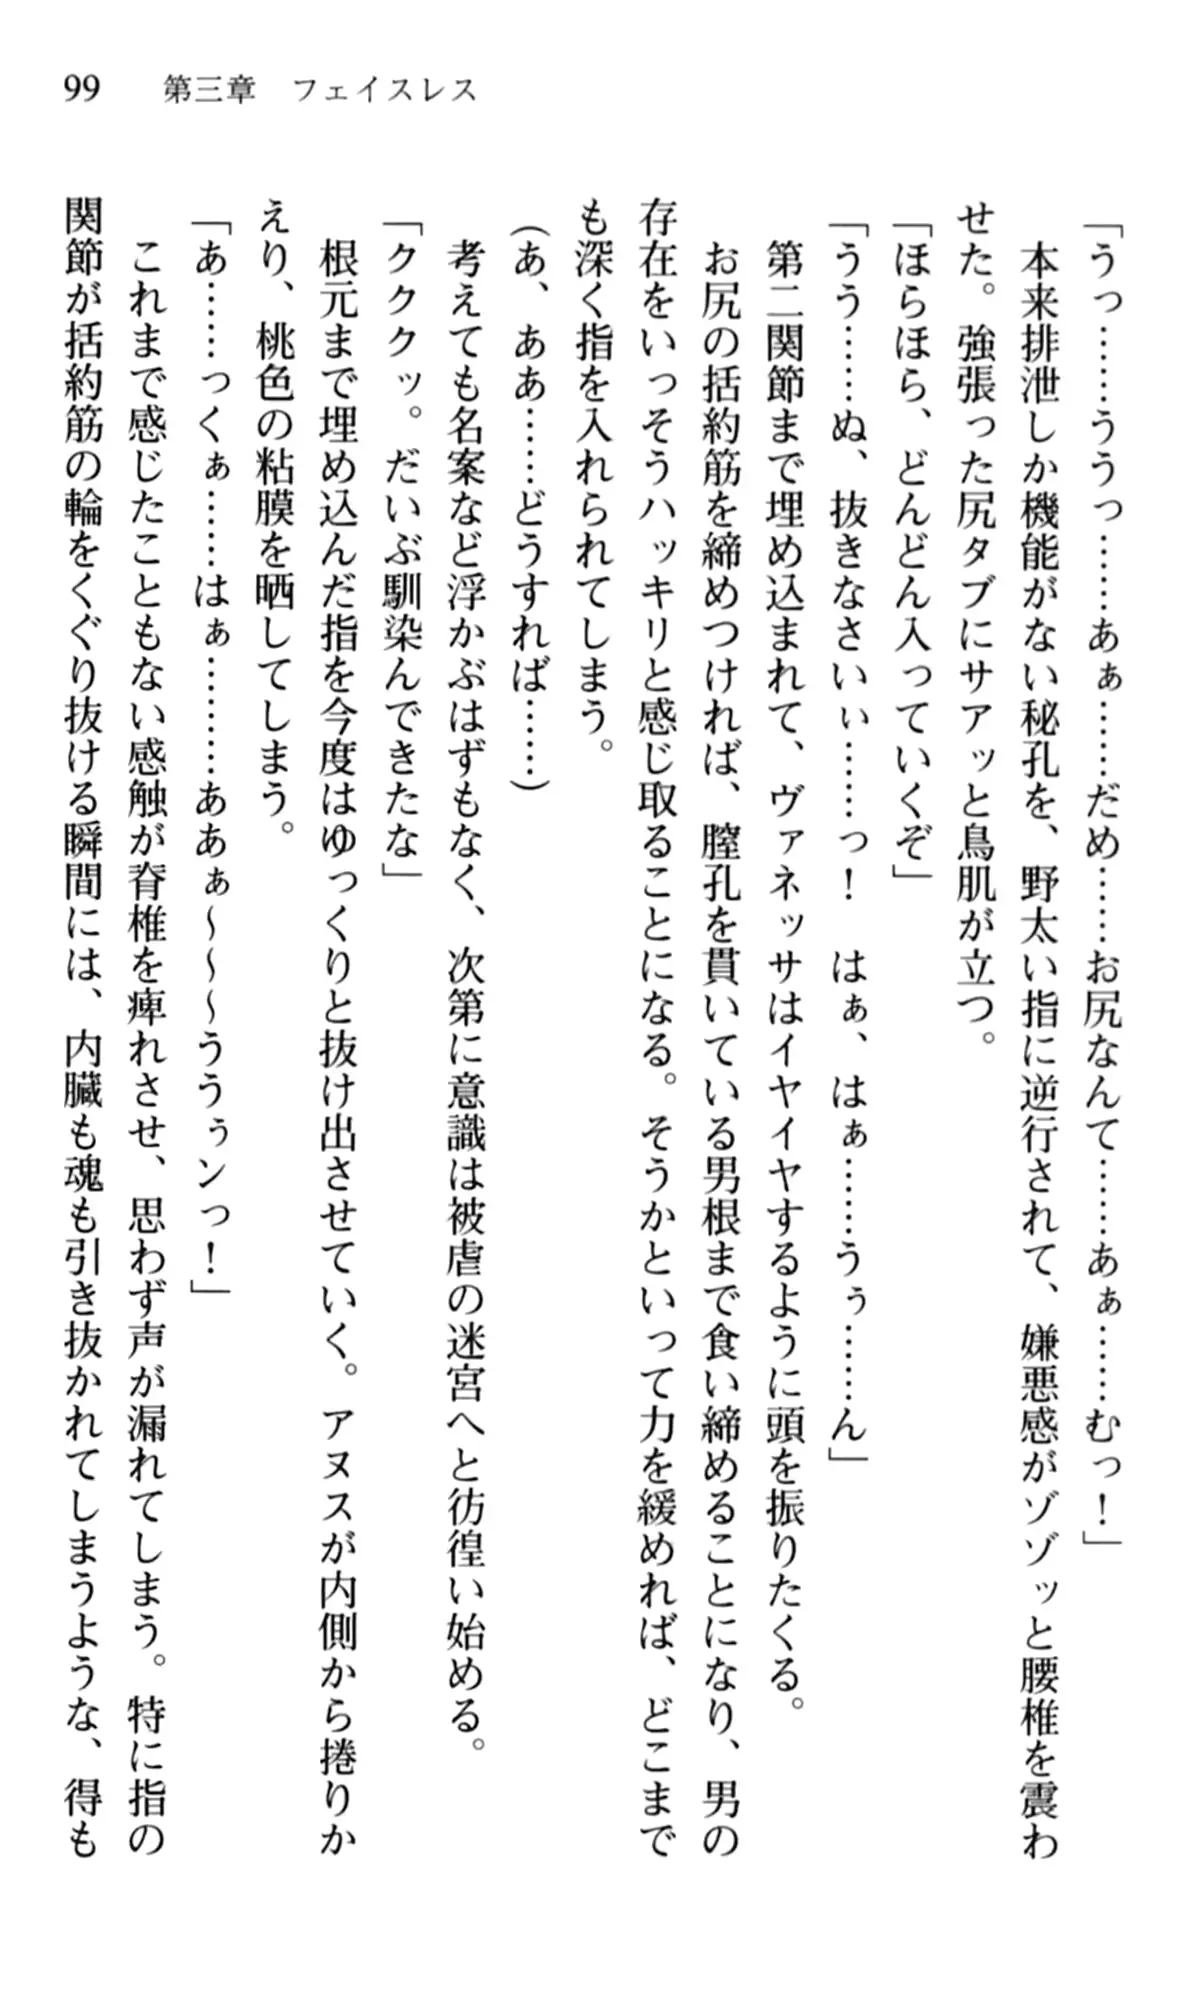 99　第三章　フェイスレス
「うっ……ううっ………あぁ……だめ……お尻なんて………あぁ……むっ！」
　本来排泄しか機能がない秘孔を、野太い指に逆行されて、嫌悪感がゾゾッと腰椎を震わ
せた。強張った尻タブにサアッと鳥肌が立つ。
「ほらほら、どんどん入っていくぞ」
「うう……ぬ、抜きなさいぃ……っ！　はぁ、はぁ……うぅ……ん」
　第二関節まで埋め込まれて、ヴァネッサはイヤイヤするように頭を振りたくる。
　お尻の括約筋を締めつければ、膣孔を貫いている男根まで食い締めることになり、男の
存在をいっそうハッキリと感じ取ることになる。そうかといって力を緩めれば、どこまで
も深く指を入れられてしまう。
（あ、ああ……どうすれば……）
　考えても名案など浮かぶはずもなく、次第に意識は被虐の迷宮へと彷徨い始める。
「クククッ。だいぶ馴染んできたな」
　根元まで埋め込んだ指を今度はゆっくりと抜け出させていく。アヌスが内側から捲りか
えり、桃色の粘膜を晒してしまう。
「あ……っくぁ………はぁ…………ああぁ～～～ううぅンっ！」
　これまで感じたこともない感触が脊椎を痺れさせ、思わず声が漏れてしまう。特に指の
関節が括約筋の輪をくぐり抜ける瞬間には、内臓も魂も引き抜かれてしまうような、得も